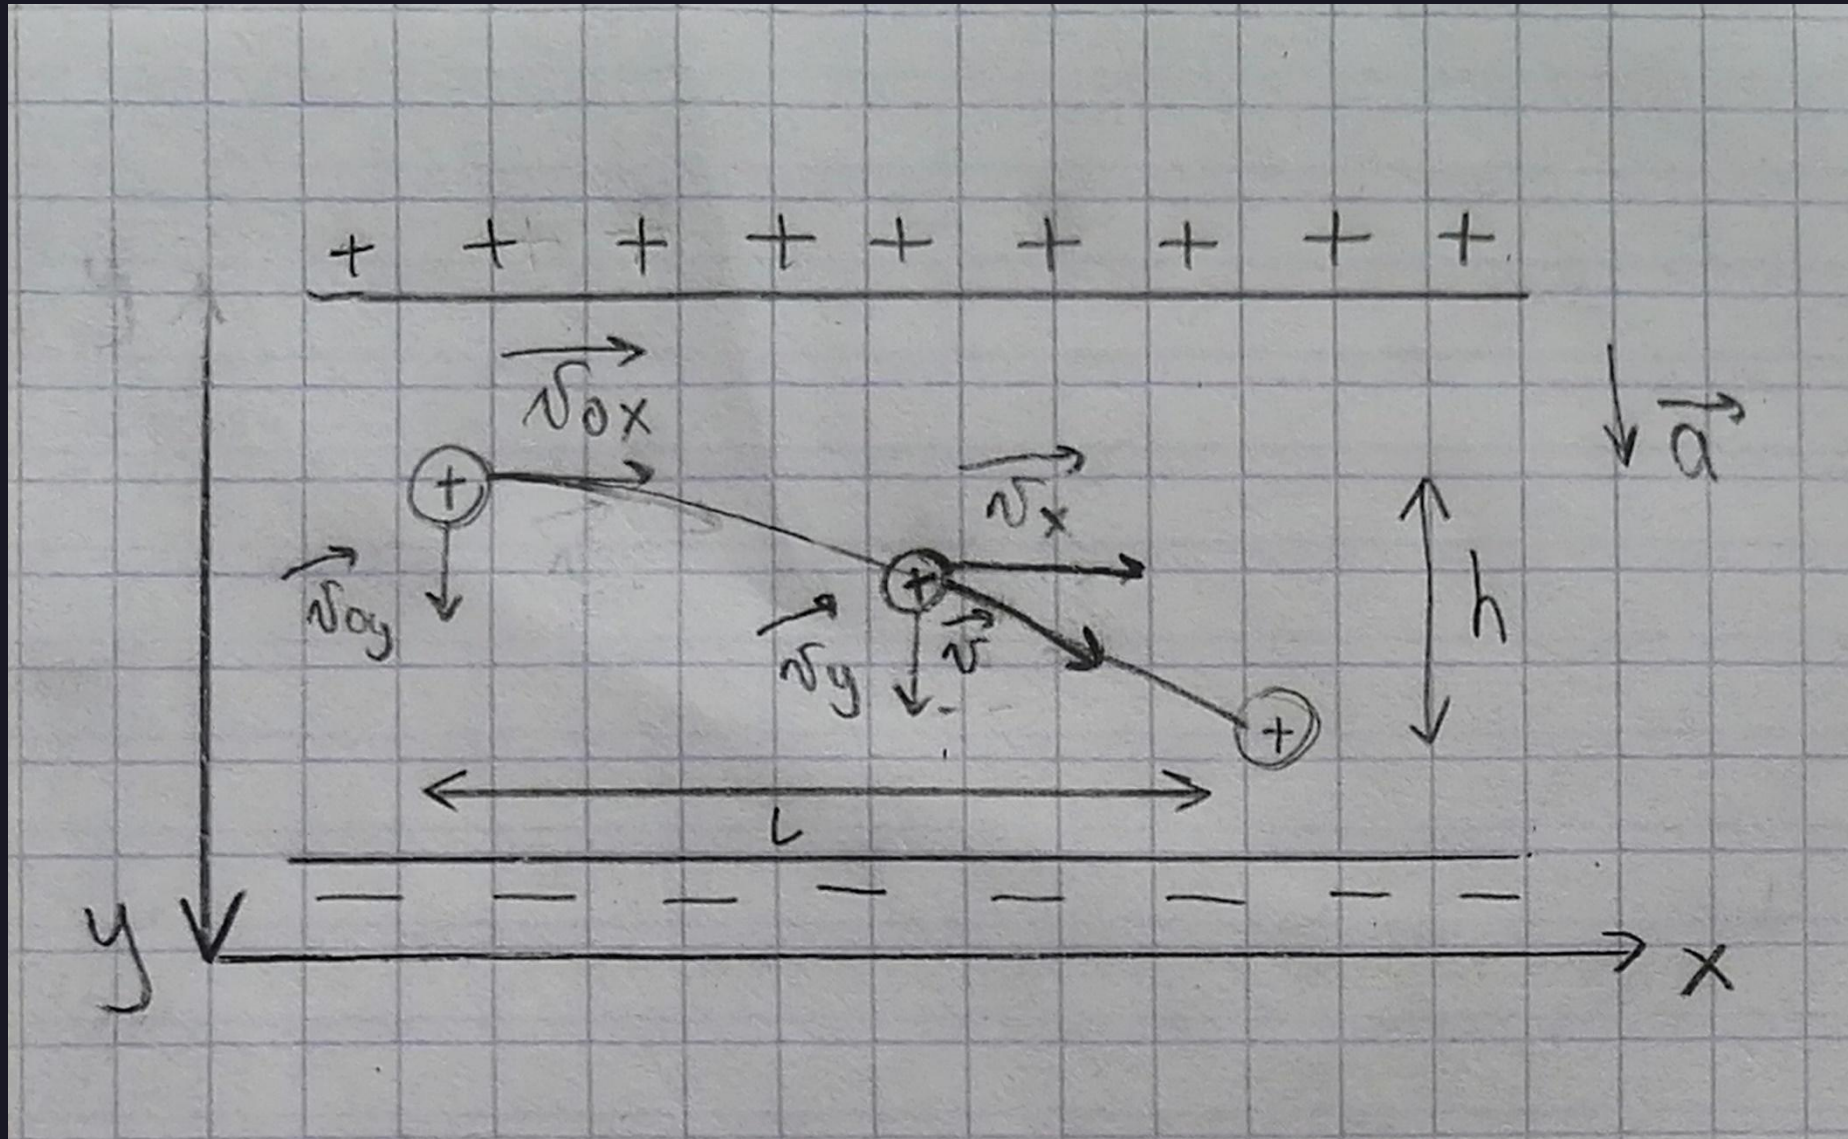 + + + + + + + + +
v⃗₀ₓ
a⃗
+
v⃗ₓ
h
v⃗₀y
+
v⃗y
v⃗
+
L
− − − − − − − −
y
x